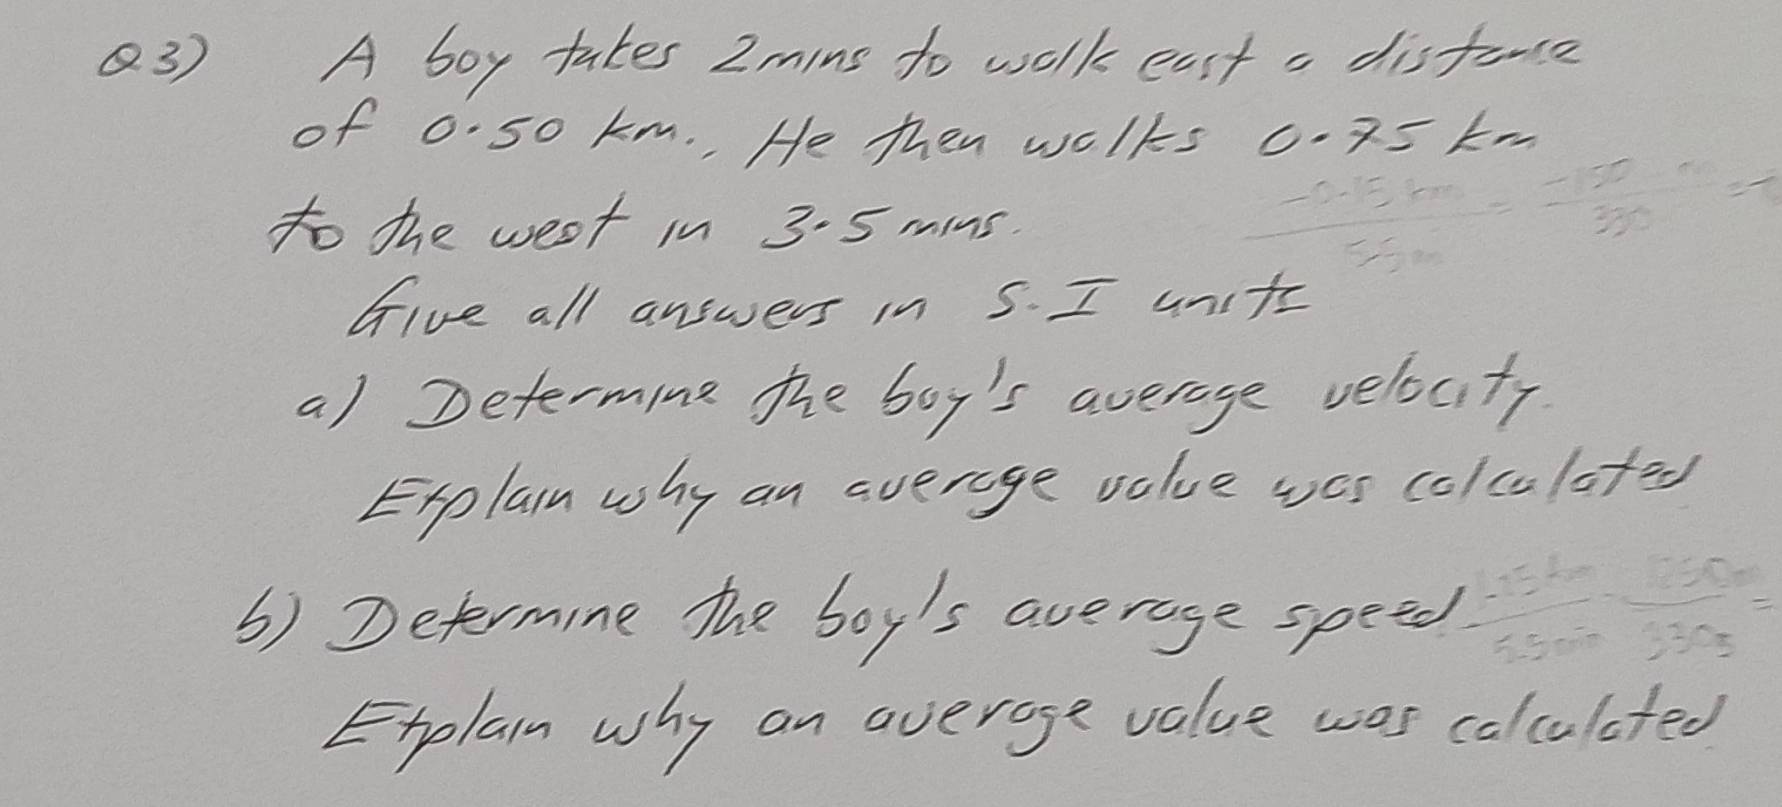 Q3) A boy takes 2mins to walk east a distance
of 0.50 km., He then walks 0.75 km
to the west in 3.5 mins.
Give all answers in S.I units
a) Determine the boy's average velocity.
Explain why an average value was calculated
b) Determine the boy's average speed.
Explain why an average value was calculated.